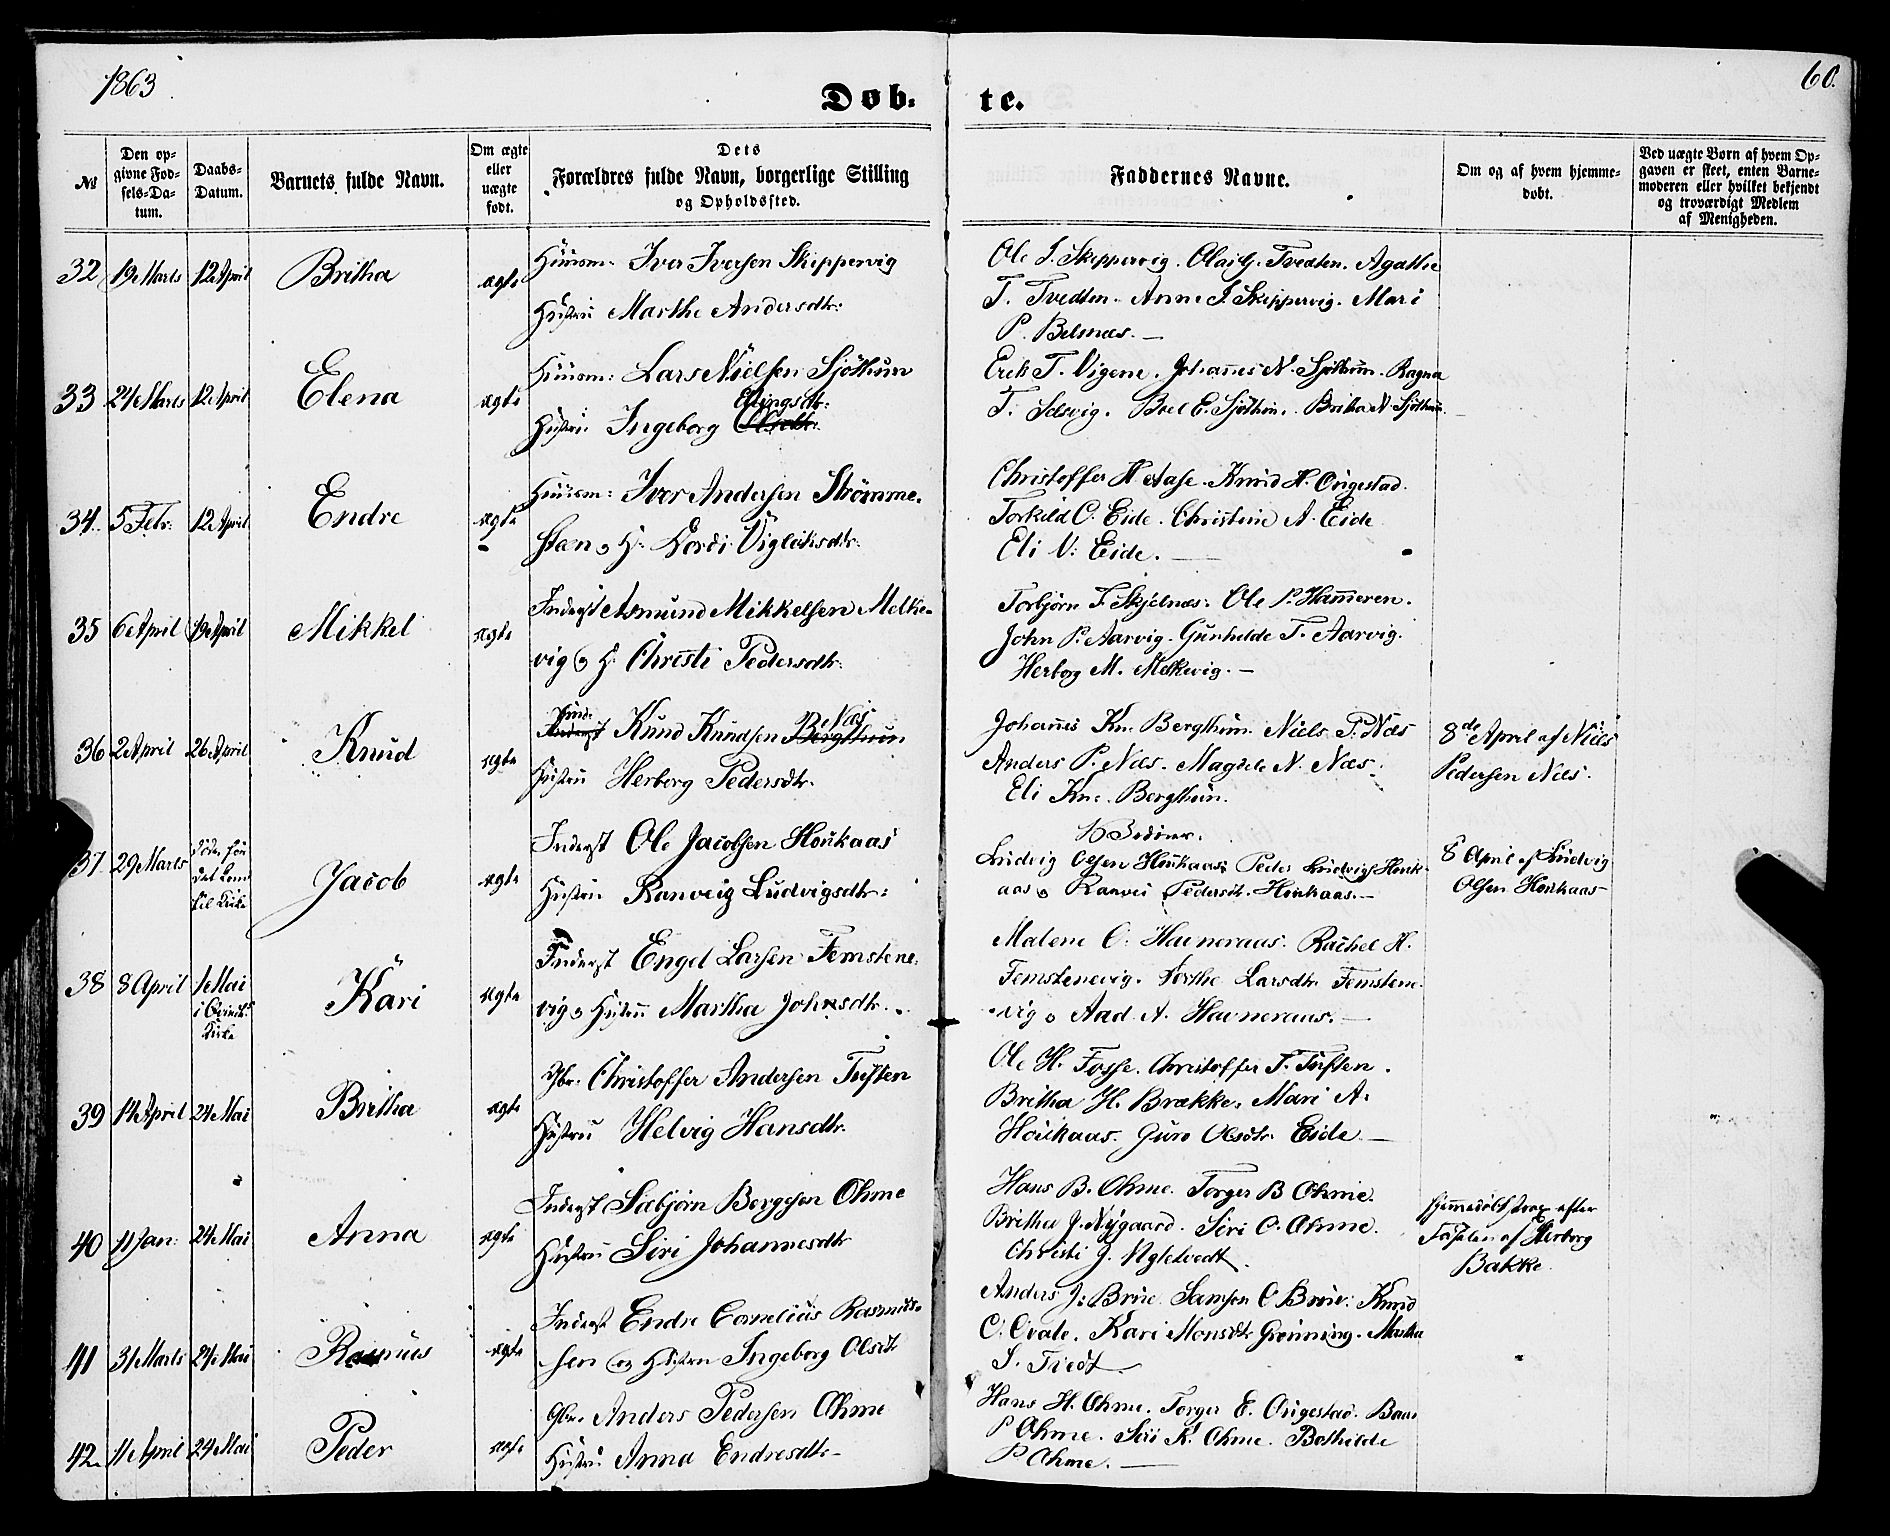 1863
60.
Døb-te.
№
Den op-
givne Fød-
sels-Da-
tum.
Daabs-
Datum.
Barnets fulde Navn.
Om ægte
eller
uægte
født.
Dets
Forældres fulde Navn, borgerlige Stilling
og Opholdssted.
Faddernes Navne.
Om og af hvem hjemme-
døbt.
Ved uægte Børn af hvem Op-
gaven er skeet, enten Barne-
moderen eller hvilket bekjendt
og troværdigt Medlem
af Menigheden.
32 19 Marts 12 April Britha ægte Huusm: Iver Iversen Skippervig
Hustru Marthe Andersdtr:
Ole I. Skippervig. Tvedten. Agathe
T. Tvedten. Anne I Skippervig. Mari
P. Belsnæs. —
33 24 Marts 12 April Elena ægte Huusm: Lars Nielsen Sjøthun
Ellingsdtr:
Hustru Ingeborg
Erik T. Vigene. Johannes N. Sjøthun. Ragna
T. Selsvig. Brel E. Sjøthun. Britha N. Sjøthun.
34. 5 Febr: 12 April Endre ægte Huusm: Iver Andersen Strømme-
støen og H: Gordi Vigleiksdtr:
Christoffer H Aase. Knud H. Øvigestad.
Torkild O. Eide. Christine A. Eide
Eli V. Eide. —
35 6 April 19 April Mikkel ægte Inderst Asmund Mikkelsen Melke-
vig og H: Christi Pedersdtr:
Torbjørn T. Skjelnæs. Ole P. Hammeren.
John P. Aarvig. Gunhilde T. Aarvig.
Herborg M. Melkevig. —
36 2 April 26 April Knud ægte Inderst Knud Knudsen Bergthun Næs
Hustru Herborg Pedersdtr.
Johannes Kn. Bergthun. Niels P. Næs
Anders P. Næs. Magdele N. Næs.
Eli Kn. Bergthun.
8de April af Niels
Pedersen Næs.
37. 29 Marts Døde før
det kom
til Kirke Jacob ægte Inderst Ole Jacobsen Houkaas
Hustru Ranveig Ludvigsdtr:
Ludvig Olsen Houkaas, Peder Ludvigs Houk-
aas og Ranvei Pedersdt. Houkaas. —
8 April af Ludvig
Olsen Houkaas
38 8 April 1 Mai
Kirke Kari ægte Inderst Engel Larsen Femstene-
vig og Hustru Martha Johnsdtr.
Malene O. Havneraas. Rachel H.
Femstenevig. Dorthe Larsdtr Femstene-
vig og Aad A. Havneraas. —
39 14 April 24 Mai Britha ægte Gbr. Christoffer Andersen Tuften
Hustru Helvig Hansdtr.
Ole H. Fosse. Christoffer T. Tuften.
Britha H. Brække. Mari A.
Houkaas. Guro Olsdtr. Eide —
40 11 Jan: 24 Mai Anna ægte Inderst Sæbjørn Bergesen Ohme
Hustru Siri Johannesdtr
Hans B. Ohme. Torger B Ohme.
Britha J. Nygaard. Siri O. Ohme.
Christi J. Ygletvedt.
hjemmedøbt strax efter
Fødselen af Herborg
Bakke.
41 31 Marts 24 Mai Rasmus ægte Inderst Endre Cornelius Rasmus-
sen og Hustru Ingeborg Olsdt
Anders J. Brue. Samson O Brue. Knud
O. Hvale. Kari Monsdtr Grønning. Martha
S. Tvedt.
42. 11 April 24 Mai Peder ægte Gbr. Anders Pedersen Ohme
Hustru Anna Endresdtr —
Hans H. Ohme. Torger E. Øvigestad. Baar
P Ohme. Siri K. Ohme. Bothilde
P Ohme. —